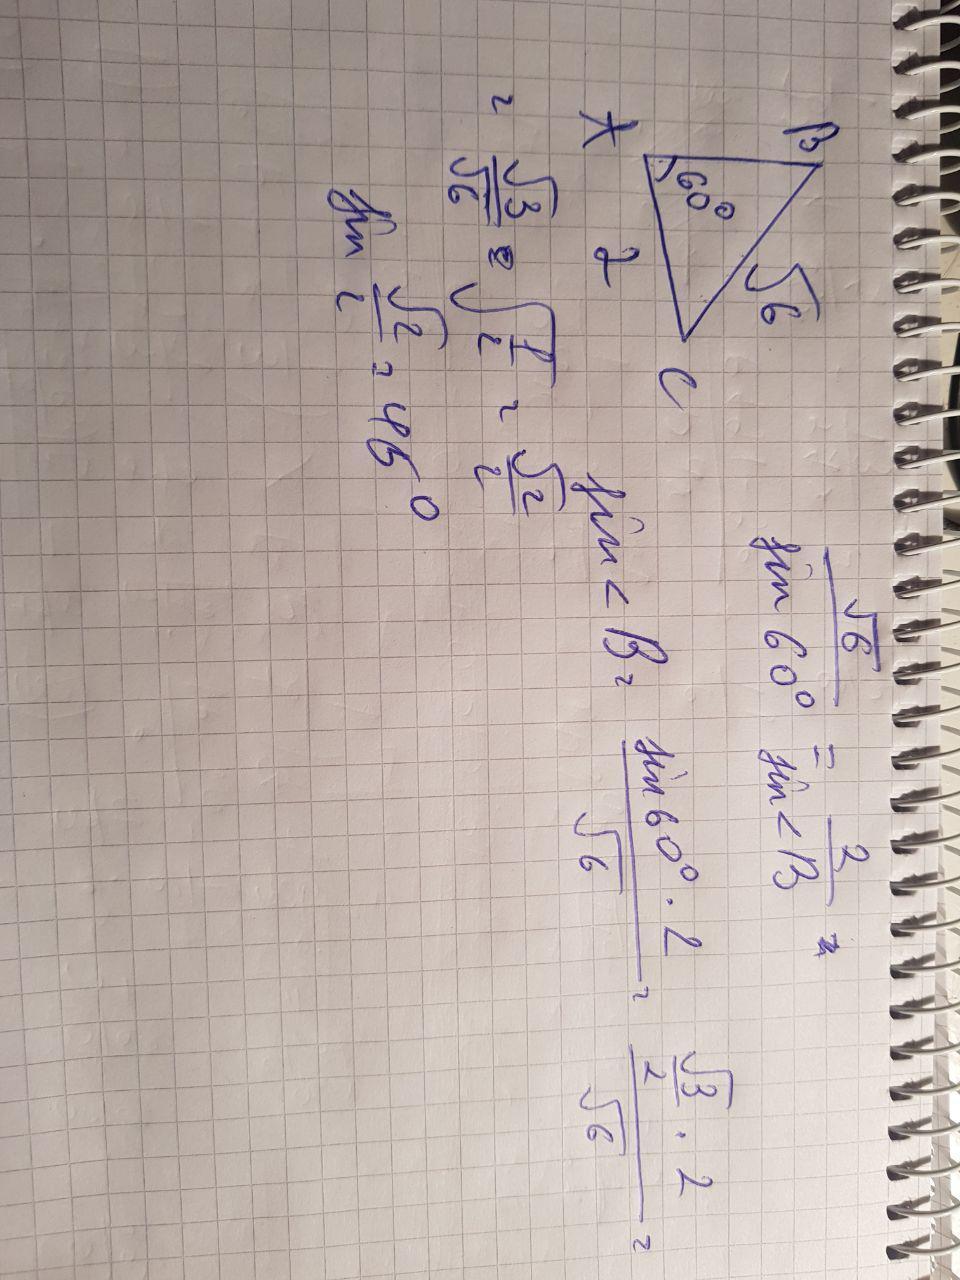 B
√6
60°
A
2
C
√6 / sin 60° = 2 / sin < B =
sin < B = sin 60° · 2 / √6 = √3/2 · 2 / √6 =
= √3/√6 = √1/2 = √2/2
sin √2/2 = 45°